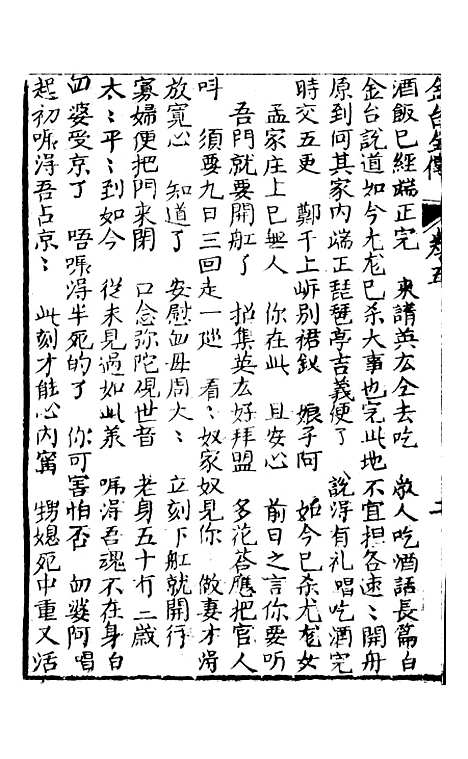 金台全傳 卷五 二
酒飯已經端正完 來請英雄全去吃 衆人吃酒話長篇白
金台說道如今尤龙已杀大事也完此地不宜担各速〻開舟
原到何其家內端正琵琶亭吉義便了 說淂有礼唱吃酒完
時交五更 鄭千上岍別裙釵 娘子阿 如今已杀尤龙女
孟家庄上已無人 你在此 且安心 前日之言你要听
吾門就要開舡了 招集英雄好拜盟 多花荅應把官人
呌 須要九日三回走一廵 看〻奴家奴見你 做妻才淂
放寬心 知道了 安慰血母周大〻 立刻下舡就開行
寡婦便把門來閉 口念弥陀覌世音 老身五十有二歲
太〻平〻到如今 從來見過如此差 唬淂吾魂不在身白
血婆受京了 唔唬淂半死的了 你可害怕否 血婆阿唱
起初唬淂吾占京〻 此刻才能心內甯 甥媳死中重又活